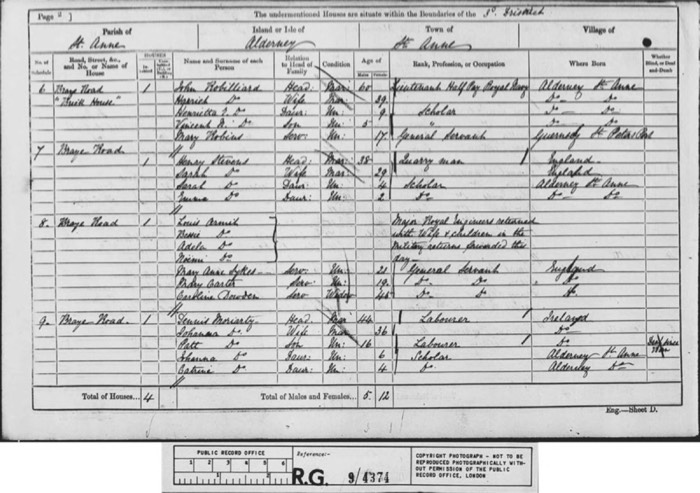 Page 2
The undermentioned Houses are situate within the Boundaries of the 3d. District
Parish of
Island or Isle of
Town of
Village of
St. Anne
Alderney
St. Anne
No. of Schedule
Road, Street, &c., and No. or Name of House
HOUSES
Name and Surname of each Person
Relation to Head of Family
Condition
Age of
Males
Females
Rank, Profession, or Occupation
Where Born
Whether Blind, or Deaf and Dumb
6 Braye Road 1 John Robilliard Head Mar: 60 Lieutenant Half Pay Royal Navy Alderney St Anne
House" Do Wife Mar: 39 Do Do
Henrietta Do Daur: Un: 9 Scholar Do Do
Vincent Do Son Un: 5 " Do Do
Mary Robins Serv: Un: 17 General Servant Guernsey St Peters Port
7 Braye Road
1 Henry Stevens Head: Mar: 38 Quarry man England
Sarah Do Wife Mar: 29 England
Sarah Do Daur: Un: 4 Scholar Alderney St Anne
Emma Do Daur: Un: 2 Do Do Do
8. Braye Road 1 Louis Major Royal Engineers returned
Bessie Do with Wife & children in the
Adela Do Military returns forwarded this
Do day
Mary Anne Sykes Serv Un: 21 General Servant England
Mary Carter Serv Un: 19 Do Do
Caroline Dowden Serv Widow 45 Do Do
9. Braye Road. 1 Dennis Moriarty Head Mar 44 Labourer Ireland
Johanna Do Wife Mar 36 Do
Patt Do Son Un: 16 Labourer Do
Johanna Do Daur: Un: 6 Scholar Alderney St Anne
Catrine Do Daur: Un: 4 Do Alderney Do
Total of Houses... 4
Total of Males and Females... 5 12
Eng.—Sheet D.
PUBLIC RECORD OFFICE
1 2 3 4 5 6
1 2
Reference:-
R.G. 9/4374
COPYRIGHT PHOTOGRAPH - NOT TO BE
REPRODUCED PHOTOGRAPHICALLY WITH-
OUT PERMISSION OF THE PUBLIC
RECORD OFFICE, LONDON